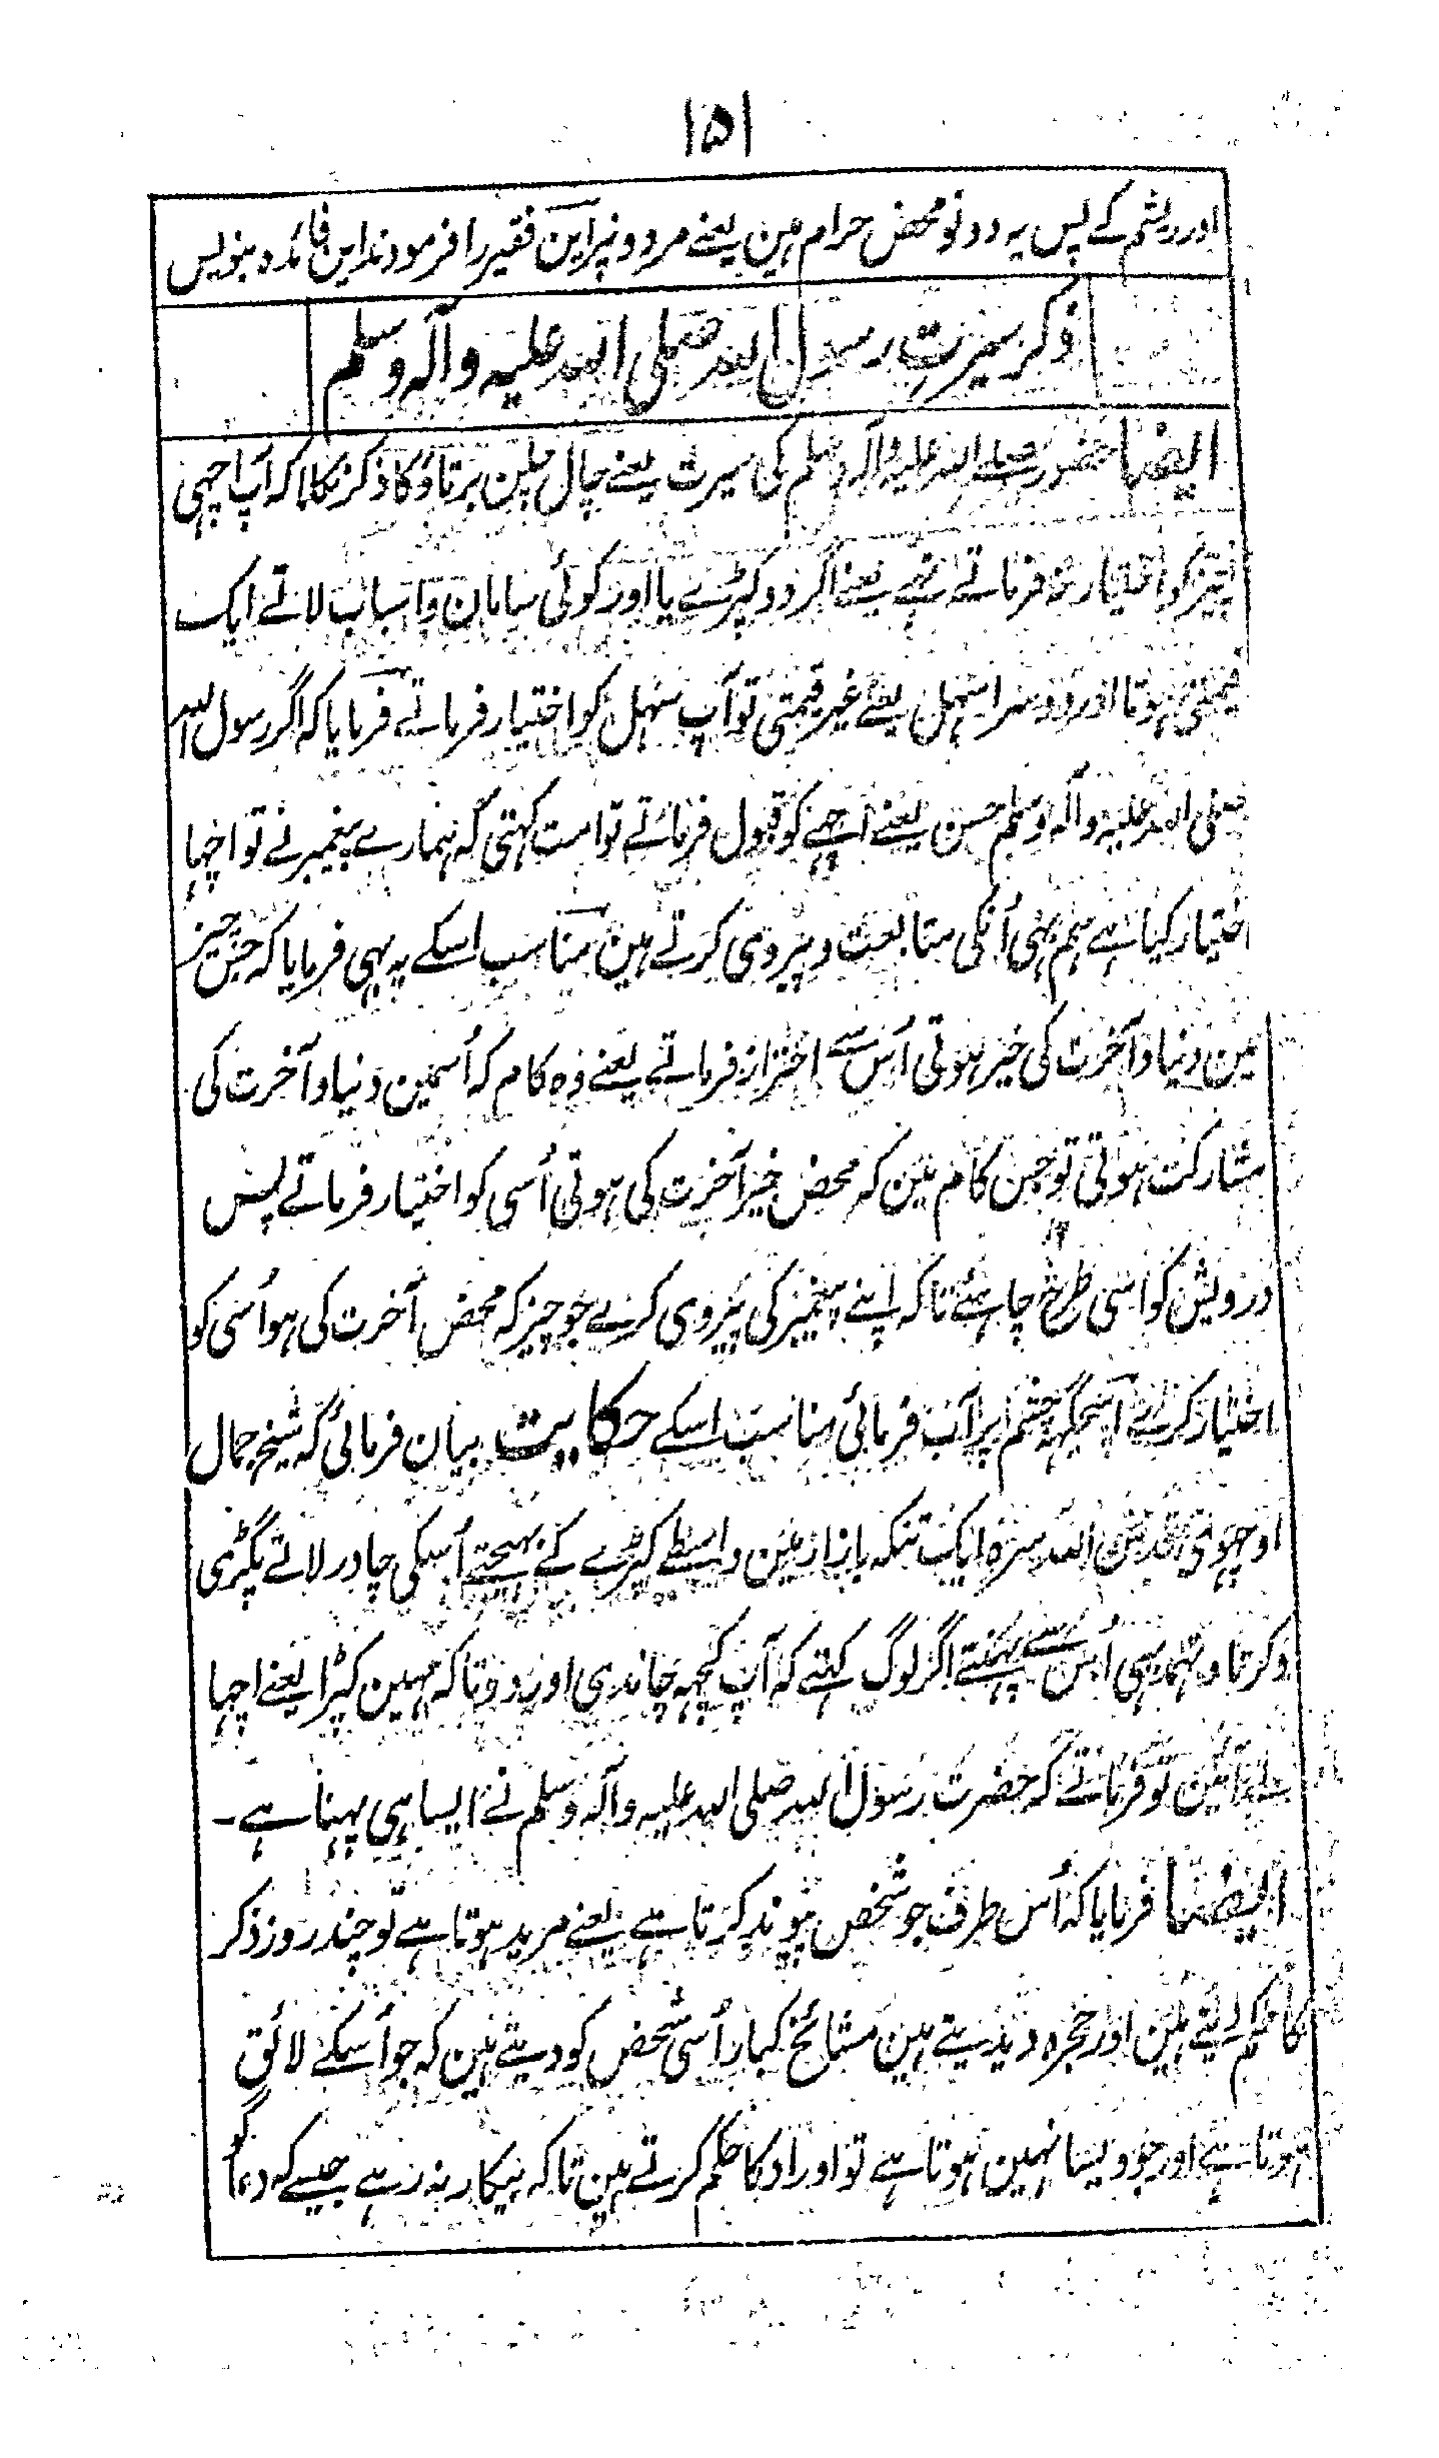 ۱۵۱
اور ریشم کے پس یہ دونو محض حرام ہین یعنے مرد و نیز این فقیر را فرمودند این فائدہ بنویس
ذکر سیرت رسول اللہ صلی اللہ علیہ وآلہ وسلم
ایضا حضور صلے اللہ علیہ وآلہ وسلم کی سیرت یعنے چال چلن برتاؤ کا ذکر نکلا کہ آپ اچہی
چیز کو اختیار نہ فرماتے تھے یعنے اگر دو کپڑے یا اور کوئی سامان و اسباب لاتے ایک
قیمتی ہوتا اور دوسرا سہل یعنے غیر قیمتی تو آپ سہل کو اختیار فرماتے فرمایا کہ اگر رسول اللہ
صلی اللہ علیہ وآلہ وسلم حسن یعنے اچہے کو قبول فرماتے تو امت کہتی کہ ہمارے پیغمبر نے تو اچہا
اختیار کیا ہے ہم بہی اُنکی متابعت و پیروی کرتے ہین مناسب اسکے یہ بہی فرمایا کہ جس چیز
مین دنیا و آخرت کی خیر ہوتی اُس سے احتراز فرماتے یعنے وہ کام کہ اُسمین دنیا و آخرت کی
مشارکت ہوتی تو جس کام مین کہ محض خیر آخرت کی ہوتی اُسی کو اختیار فرماتے پس
درویش کو اسی طرح چاہئے تاکہ اپنے پیغمبر کی پیروی کرے جو چیز کہ محض آخرت کی ہو اُسی کو
اختیار کرے اسجگہہ چشم پر آب فرمائی مناسب اسکے حکایت بیان فرمائی کہ شیخ جمال
اوچہوی قدس اللہ سرہ ایک تنکہ بازار مین واسطے کپڑے کے بہیجتے اُسکی چادر لاتے پگڑی
و کرتا و تہمد بہی اُس سے پہنتے اگر لوگ کہتے کہ آپ کچہہ چاندی اور دو تاکہ مہین کپڑا یعنے اچہا
لائین تو فرماتے کہ حضرت رسول اللہ صلی اللہ علیہ وآلہ وسلم نے ایسا ہی پہنا ہے۔
ایضا فرمایا کہ اُس طرف جو شخص پیوند کرتا ہے یعنے مرید ہوتا ہے تو چند روز ذکر
کا حکم دیتے ہین اور حجرہ دیدیتے ہین مشائخ کبار اُسی شخص کو دیتے ہین کہ جو اُسکے لائق
ہوتا ہے اور جو ویسا نہین ہوتا ہے تو اوراد کا حکم کرتے ہین تاکہ بیکار نہ رہے جیسے کہ دعا گو